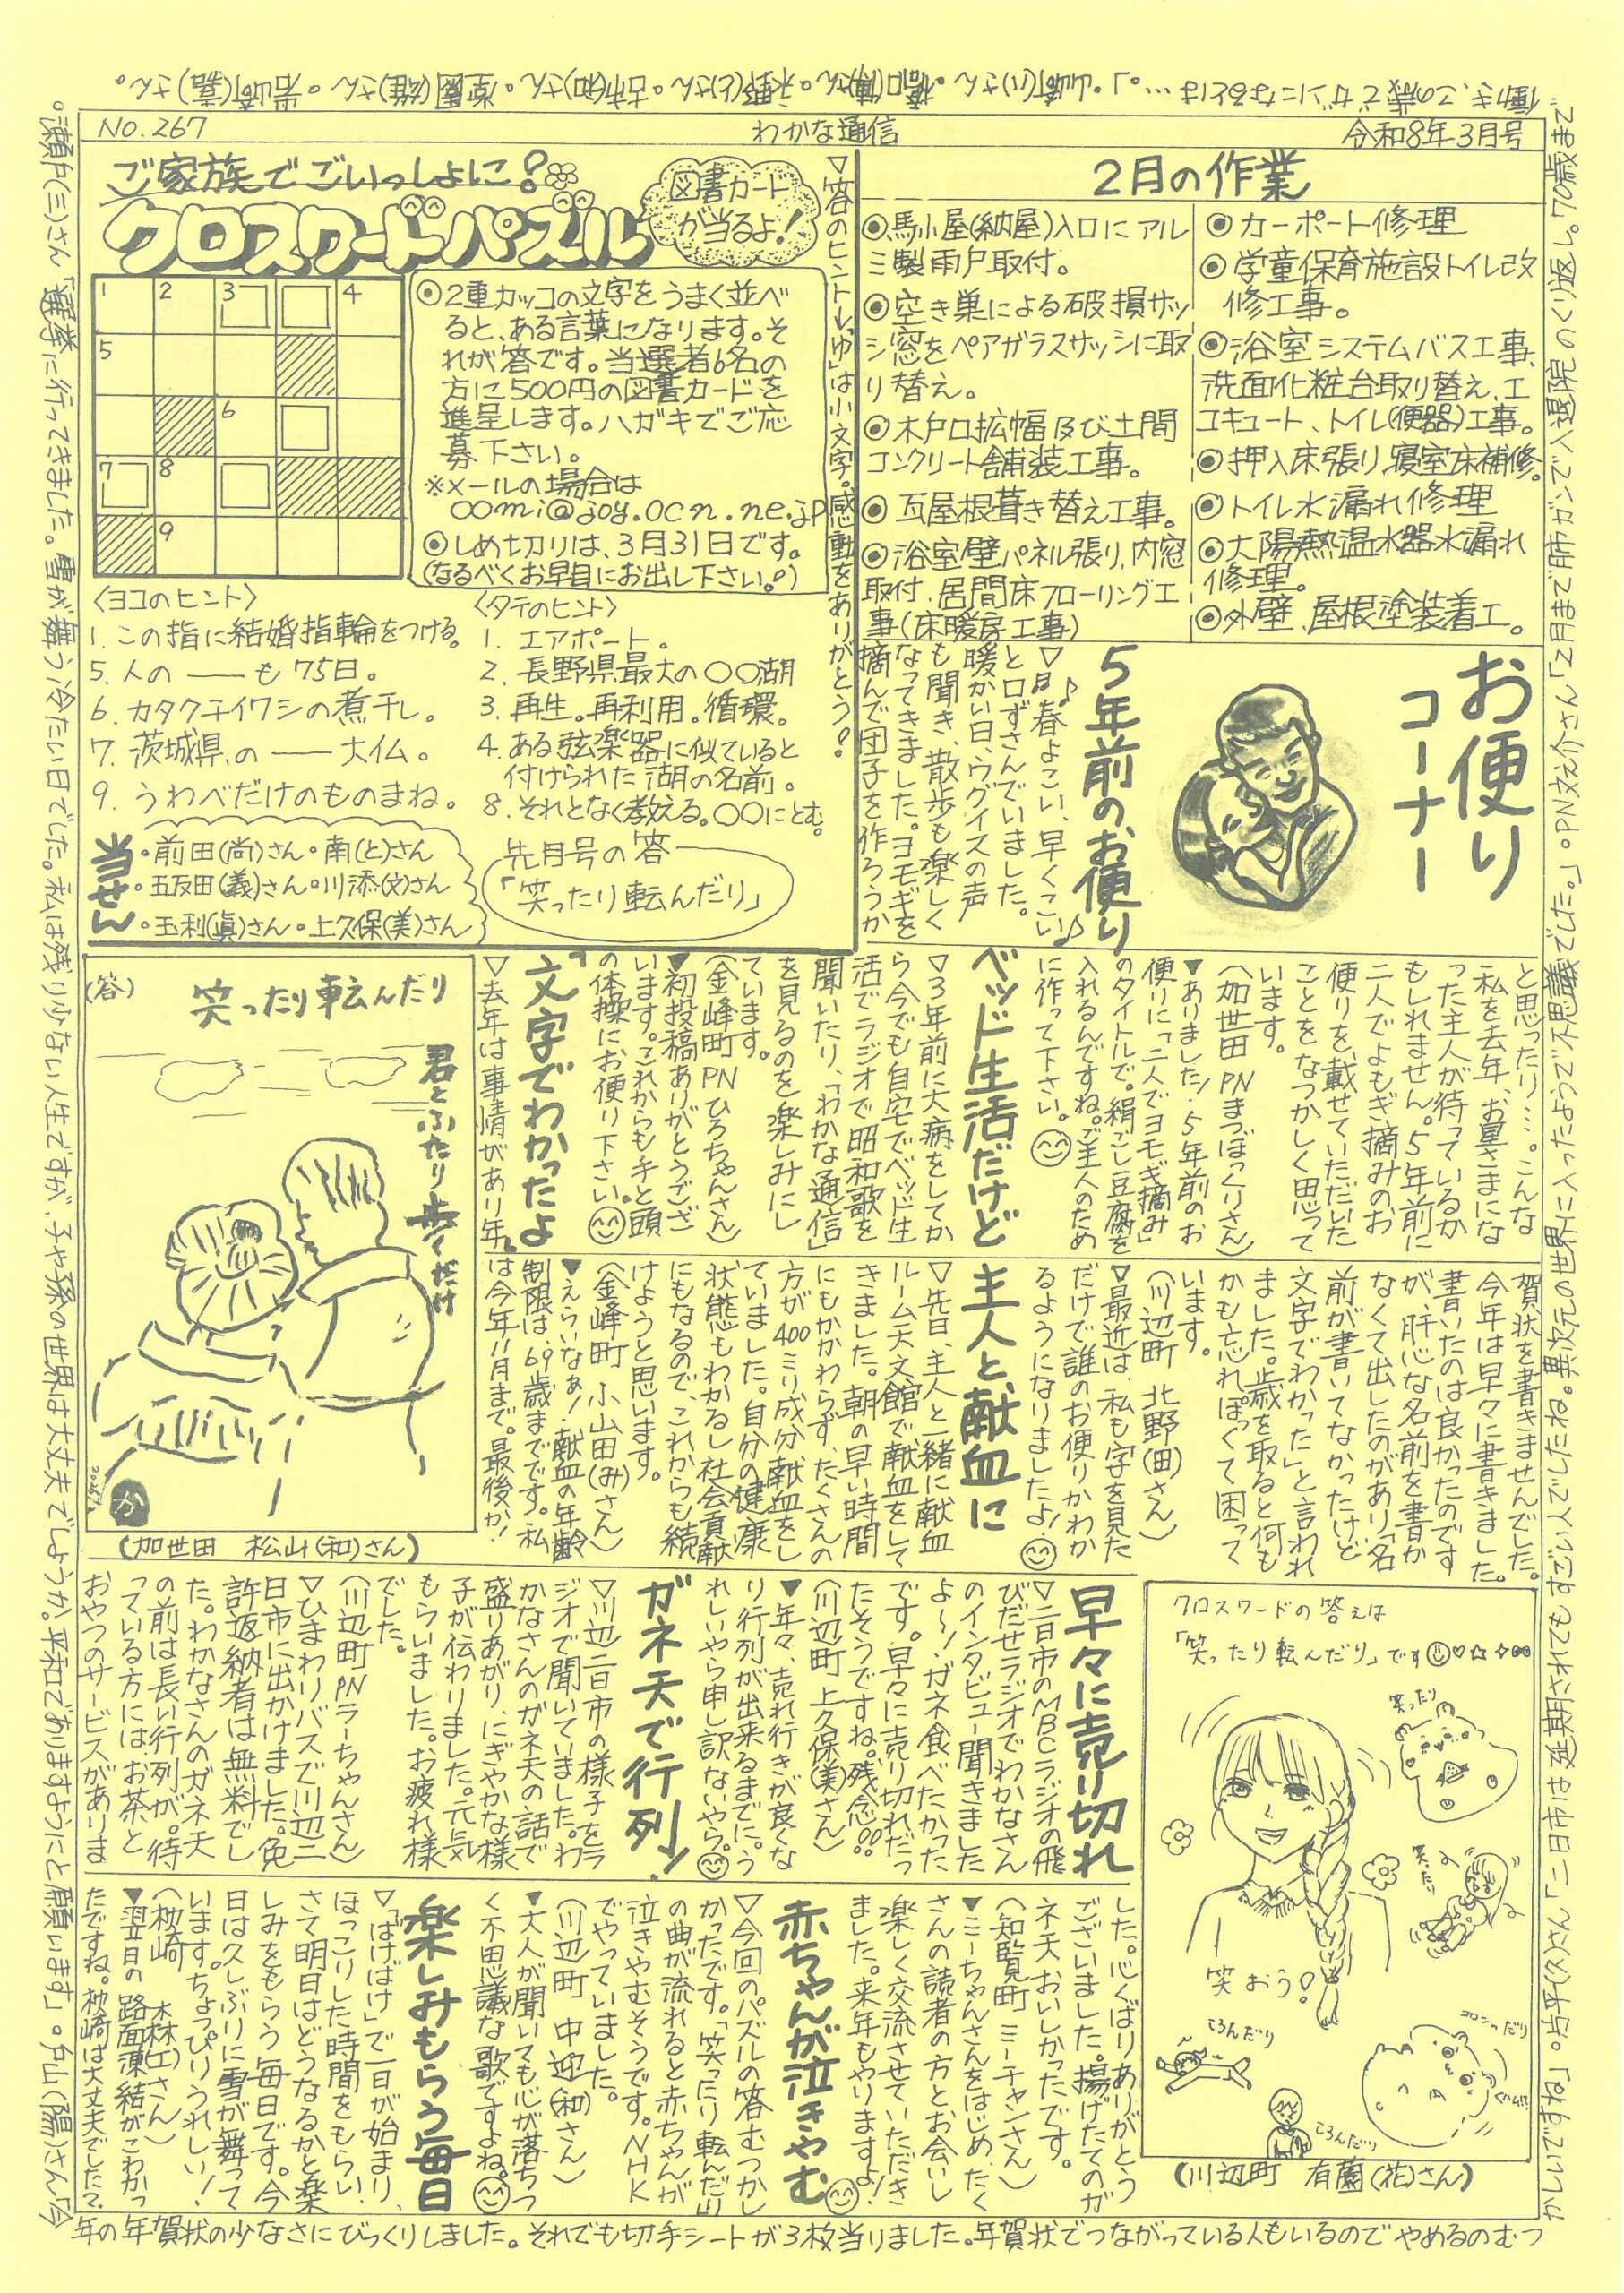 No.267
わかな通信
令和8年3月号
ご家族でごいっしょに?
クロスワードパズル
図書カード
が当るよ!
1 2 3 4
5
6
7 8
9
◉2重カッコの文字をうまく並べ
ると、ある言葉になります。そ
れが答です。当選者6名の
方に500円の図書カードを
進呈します。ハガキでご応
募下さい。
※メールの場合は
oomi@joy.ocn.ne.jp
◉しめ切りは、3月31日です。
(なるべくお早目にお出し下さい。)
▽答のヒント↓「ゆ」は小文字。感動をありがとう!
〈ヨコのヒント〉
1. この指に結婚指輪をつける。
5. 人の ── も75日。
6. カタクチイワシの煮干し。
7. 茨城県の ── 大仏。
9. うわべだけのものまね。
〈タテのヒント〉
1. エアポート。
2. 長野県最大の〇〇湖
3. 再生。再利用。循環。
4. ある弦楽器に似ていると
付けられた湖の名前。
8. それとなく教える。〇〇にとむ。
当せん
・前田(尚)さん・南(と)さん
・五反田(義)さん・川添(文)さん
・玉利(眞)さん・上久保(美)さん
先月号の答
「笑ったり転んだり」
2月の作業
◉馬小屋(納屋)入口にアル
ミ製雨戸取付。
◉空き巣による破損サッ
シ窓をペアガラスサッシに取
り替え。
◉木戸口拡幅及び土間
コンクリート舗装工事。
◉瓦屋根葺き替え工事。
◉浴室壁パネル張り、内窓
取付、居間床フローリング工
事(床暖房工事)
◉カーポート修理
◉学童保育施設トイレ改
修工事。
◉浴室システムバス工事、
洗面化粧台取り替え、エ
コキュート、トイレ(便器)工事。
◉押入床張り、寝室床補修。
◉トイレ水漏れ修理
◉太陽熱温水器水漏れ
修理。
◉外壁、屋根塗装着工。
お便り
コーナー
5年前のお便り
▽♪春よこい、早くこい♪
と口ずさんでいました。
暖かい日、ウグイスの声
も聞き、散歩も楽しく
なってきました。ヨモギを
摘んで団子を作ろうか
と思ったり…。こんな
私を去年、お星さまにな
った主人が待っているか
もしれません。5年前に
二人でよもぎ摘みのお
便りを、載せていただいた
ことをなつかしく思って
います。
(加世田 PNまつぼっくりさん)
▼ありました!5年前のお
便りに「二人でヨモギ摘み」
のタイトルで。絹ごし豆腐を
入れるんですね。ご主人のため
に作って下さい。
ベッド生活だけど
▽3年前に大病をしてか
ら今でも自宅でベッド生
活でラジオで昭和歌を
聞いたり、「わかな通信」
を見るのを楽しみにし
ています。
(金峰町 PNひろちゃんさん)
▼初投稿ありがとうござ
います。これからも手と頭
の体操にお便り下さい。
「文字でわかったよ
▽去年は事情があり年
賀状を書きませんでした。
今年は早々に書きました。
書いたのは良かったのです
が、肝心な名前を書か
なくて出したのがあり「名
前が書いてなかったけど
文字でわかった」と言われ
ました。歳を取ると何も
かも忘れっぽくて困って
います。
(川辺町 北野(田)さん)
▼最近は、私も字を見た
だけで誰のお便りかわか
るようになりましたよ!
主人と献血に
▽先日、主人と一緒に献血
ルーム天文館で献血をして
きました。朝の早い時間
にもかかわらず、たくさんの
方が400ミリ成分献血をし
ていました。自分の健康
状態もわかるし社会貢献
にもなるので、これからも続
けようと思います。
(金峰町 小山田(み)さん)
▼えらいなぁ!献血の年齢
制限は、69歳までです。私
は今年11月まで。最後か!
(答) 笑ったり転んだり
君とふたり歩くだけ
か
(加世田 松山(和)さん)
クロスワードの答えは
「笑ったり転んだり」です
笑ったり
笑ったり
笑おう!
ころんだり
コロンだり
ころんだり
(川辺町 有薗(花)さん)
早々に売り切れ
▽二日市のMBCラジオの飛
びだせラジオでわかなさん
のインタビュー聞きました
よ〜!ガネ食べたかった
です。早々に売り切れだっ
たそうですね。残念!!
(川辺町 上久保(美)さん)
▼年々、売れ行きが良くな
り行列が出来るまでに。う
れしいやら申し訳ないやら。
ガネ天で行列!
▽川辺二日市の様子をラ
ジオで聞いていました。わ
かなさんのガネ天の話で
盛りあがり、にぎやかな様
子が伝わりました。元気
もらいました。お疲れ様
でした。
(川辺町 PNラーちゃんさん)
▽ひまわりバスで川辺二
日市に出かけました。免
許返納者は無料でし
た。わかなさんのガネ天
の前は長い行列が。待
っている方には、お茶と
おやつのサービスがありま
した。心くばりありがとう
ございました。揚げたてのガ
ネ天、おいしかったです。
(知覧町 ミーチャンさん)
▼ミーちゃんさんをはじめ、たく
さんの読者の方とお会いし
楽しく交流させていただき
ました。来年もやりますよ!
赤ちゃんが泣きやむ
▽今回のパズルの答むつかし
かったです。「笑ったり転んだり」
の曲が流れると赤ちゃんが
泣きやむそうです。NHK
でやっていました。
(川辺町 中迎(和)さん)
▼大人が聞いても心が落ちつ
く不思議な歌ですよね。
楽しみもらう毎日
▽「ばけばけ」で一日が始まり、
ほっこりした時間をもらい、
さて明日はどうなるかと楽
しみをもらう毎日です。今
日は久しぶりに雪が舞って
います。ちょっぴりうれしい!
(枕崎 木林(工)さん)
▼翌日の路面凍結がこわかっ
たですね。枕崎は大丈夫でした?
かしいですね」。占平(久)さん「二日市は延期されてもすごい人でしたね。異次元の世界に入ったようで不思議でした。」。PN文介さん「2月まで肺ガンで入退院のくり返し。70歳まで
働き、この歳でガンになるとは…。」。山﨑(小)さん。橋口(博)さん。永野(仁)さん。古市(和)さん。空圜(雄)さん。岩﨑(喜)さん。
。瀬戸(三)さん「選挙に行ってきました。雪が舞う冷たい日でした。私は残り少ない人生ですが、子や孫の世界は大丈夫でしょうか。平和でありますようにと願います」。片山(陽)さん「今
年の年賀状の少なさにびっくりしました。それでも切手シートが3枚当りました。年賀状でつながっている人もいるのでやめるのむつ